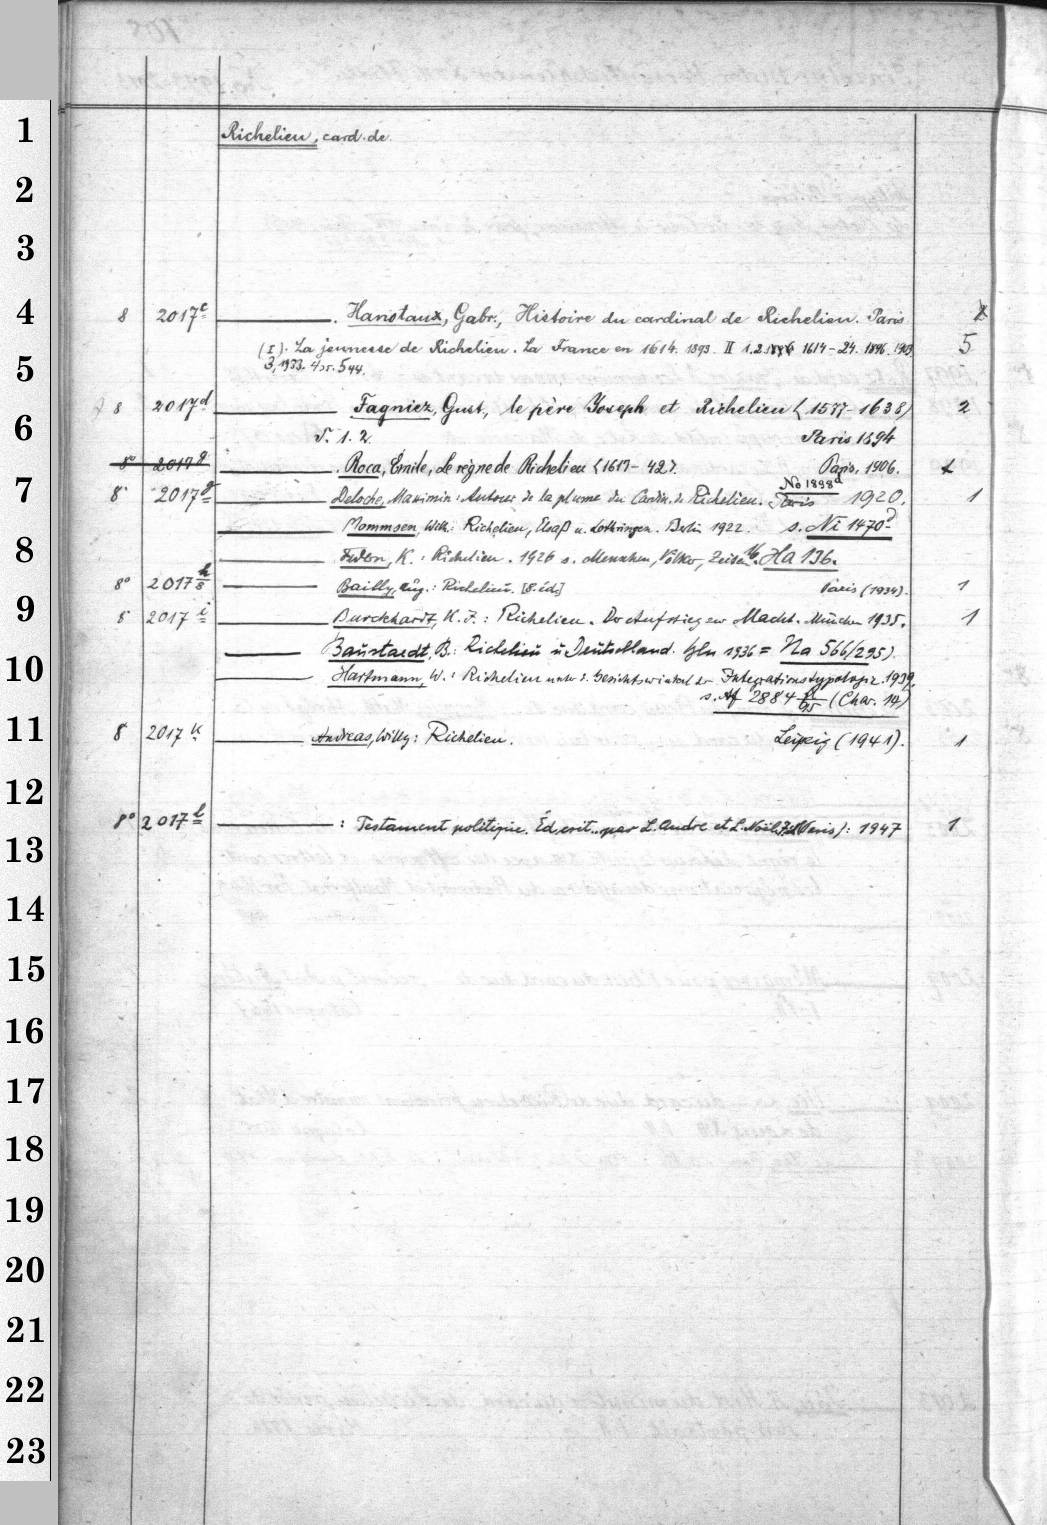 1 Richelieu, card. de.
2
3
4 8 2017 c Hanotaux, Gabr., Histoire du cardinal de Richelieu. Paris
(I). La jeunesse de Richelieu. La France en 1614. 1893. II 1.2. 1614-24. 1896. 1903 5
5 3, 1933. 4, 5. 544.
8 2017 d Fagniez, Gust., le père Joseph et Richelieu (1577-1638) 2
6 T. 1. 2. Paris 1894
8° 2017 g Roca, Emile, Le règne de Richelieu (1617-42). Paris, 1906.
No 1898 d
7 8° 2017 g Deloche, Maximin: Autour de la plume du Cardin. de Richelieu. Paris 1920. 1
Mommsen, Wilh: Richelieu, Elsaß u. Lothringen. Berlin 1922. s. Ni 1470
8 Federn, K.: Richelieu. 1926 s. Menschen, Völker, Zeiten. Ha 136.
8° 2017 h Bailly, Aug.: Richelieu. [8. éd.] Paris (1934). 1
9 8° 2017 i Burckhardt, K. J.: Richelieu. Der Aufstieg zur Macht. München 1935. 1
10 Baustaedt, B.: Richelieu u Deutschland. Bln 1936 = Na 566/295).
Hartmann, W.: Richelieu unter d. Gesichtswinkel der Integrationstypologie. 1939.
s. Af 2884 (Char. 14)
11 8° 2017 k Andreas, Willy: Richelieu. Leipzig (1941). 1
12
8° 2017 l : Testament politique. Éd. crit. par L. André et L. Noël. (Paris): 1947 1
13
14
15
16
17
18
19
20
21
22
23